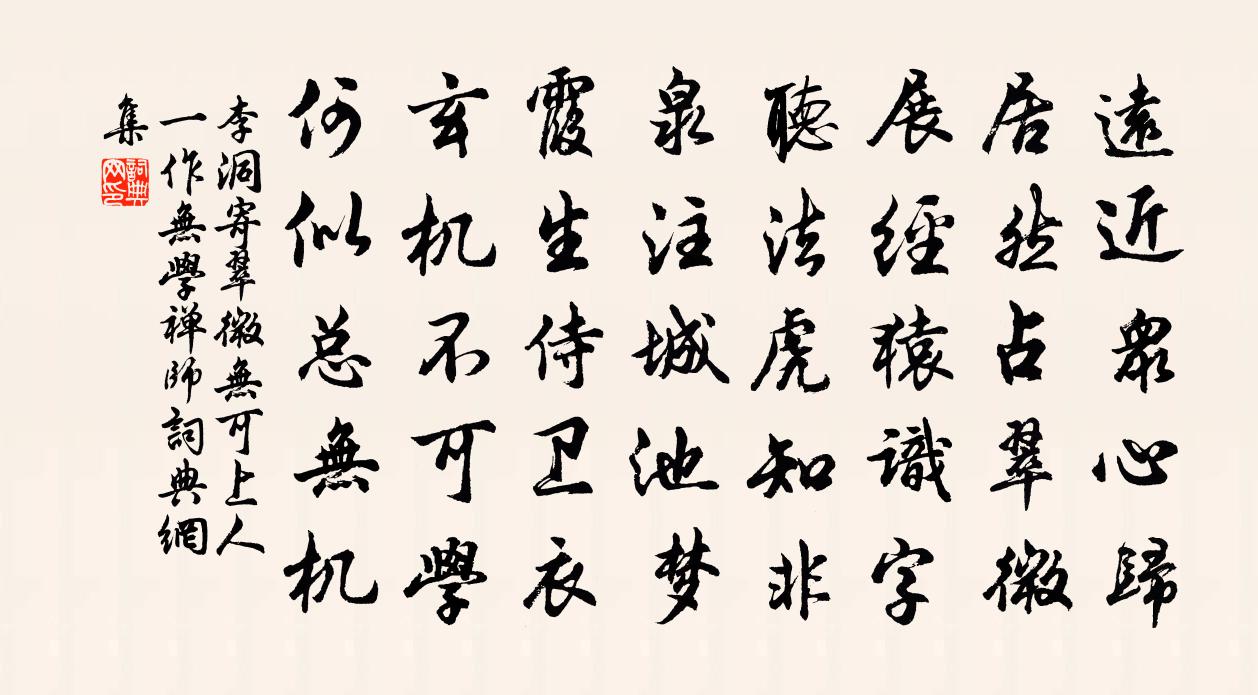 遠近衆心歸
居然占翠微
展經猿識字
聽法虎知非
泉注城池梦
霞生侍卫衣
玄机不可學
何似总無机
李洞寄翠微無可上人
一作無學禅師詞典網
集
詞典
网印